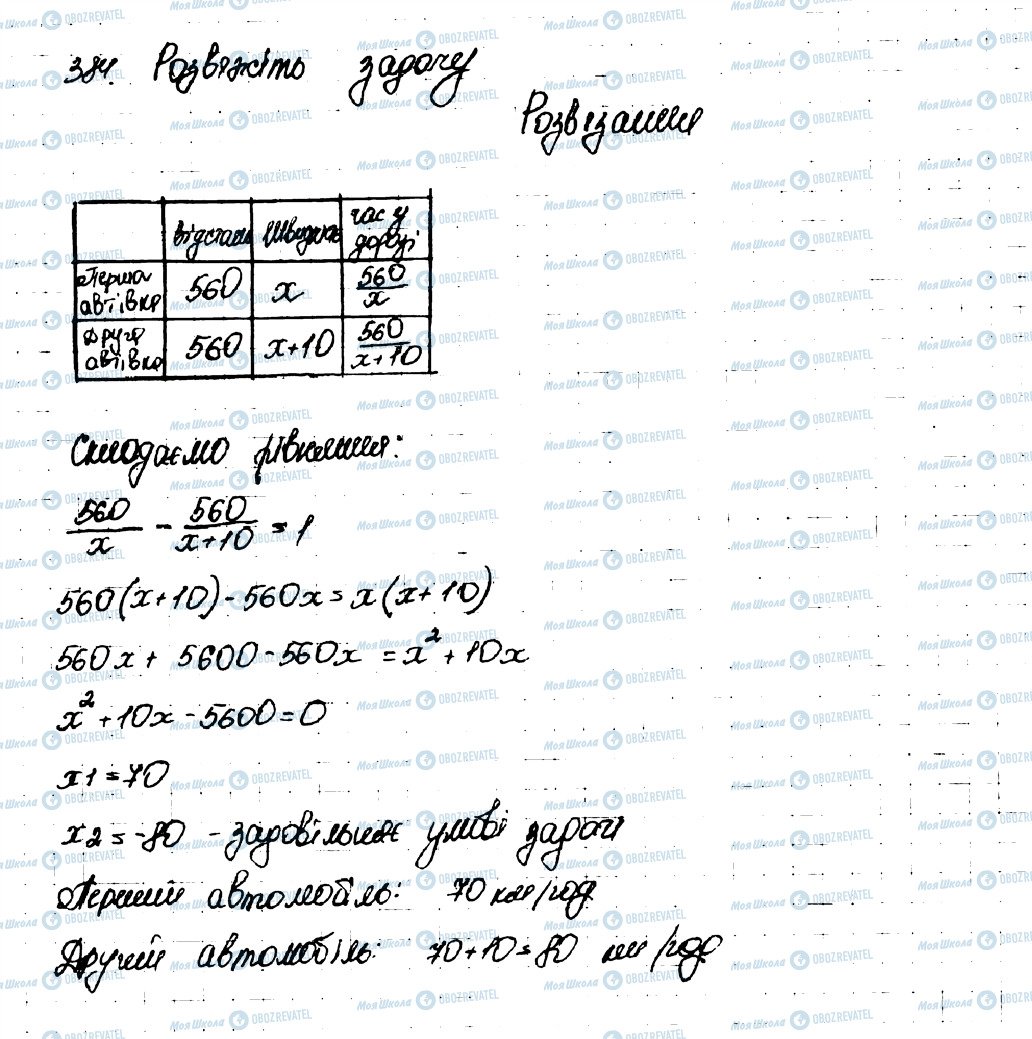 384. Розвяжіть задачу
Розвізання
відстань швидкість час у дорозі
Перша автівка 560 x 560/x
Друга автівка 560 x+10 560/(x+10)
Складаємо рівняння:
560/x - 560/(x+10) = 1
560(x+10)-560x=x(x+10)
560x+ 5600-560x = x²+10x
x²+10x-5600=0
x1=70
x2=-80 - задовільняє умові задачі
Перший автомобіль: 70 км/год
Другий автомобіль: 70+10=80 км/год